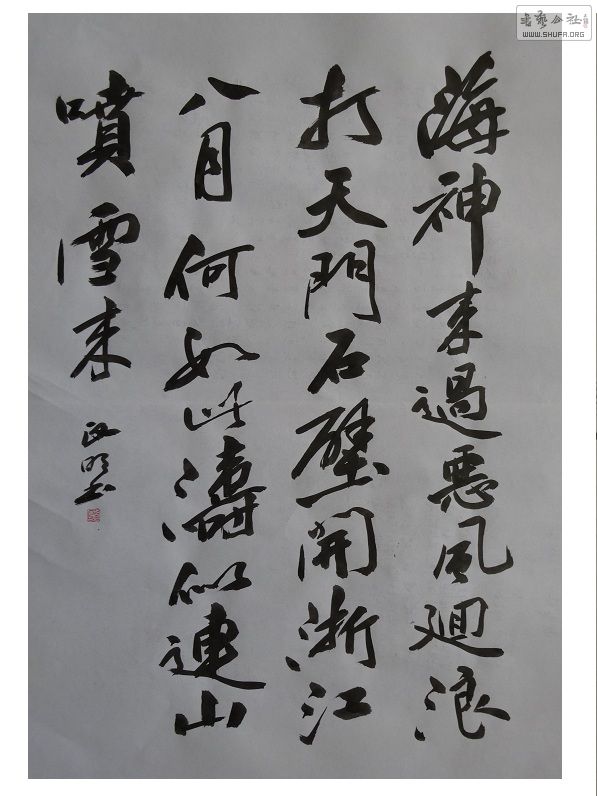 海神来過悪風廻浪
打天門石壁開浙江
八月何如此濤似連山
噴雪来
書藝公社
WWW.SHUFA.ORG